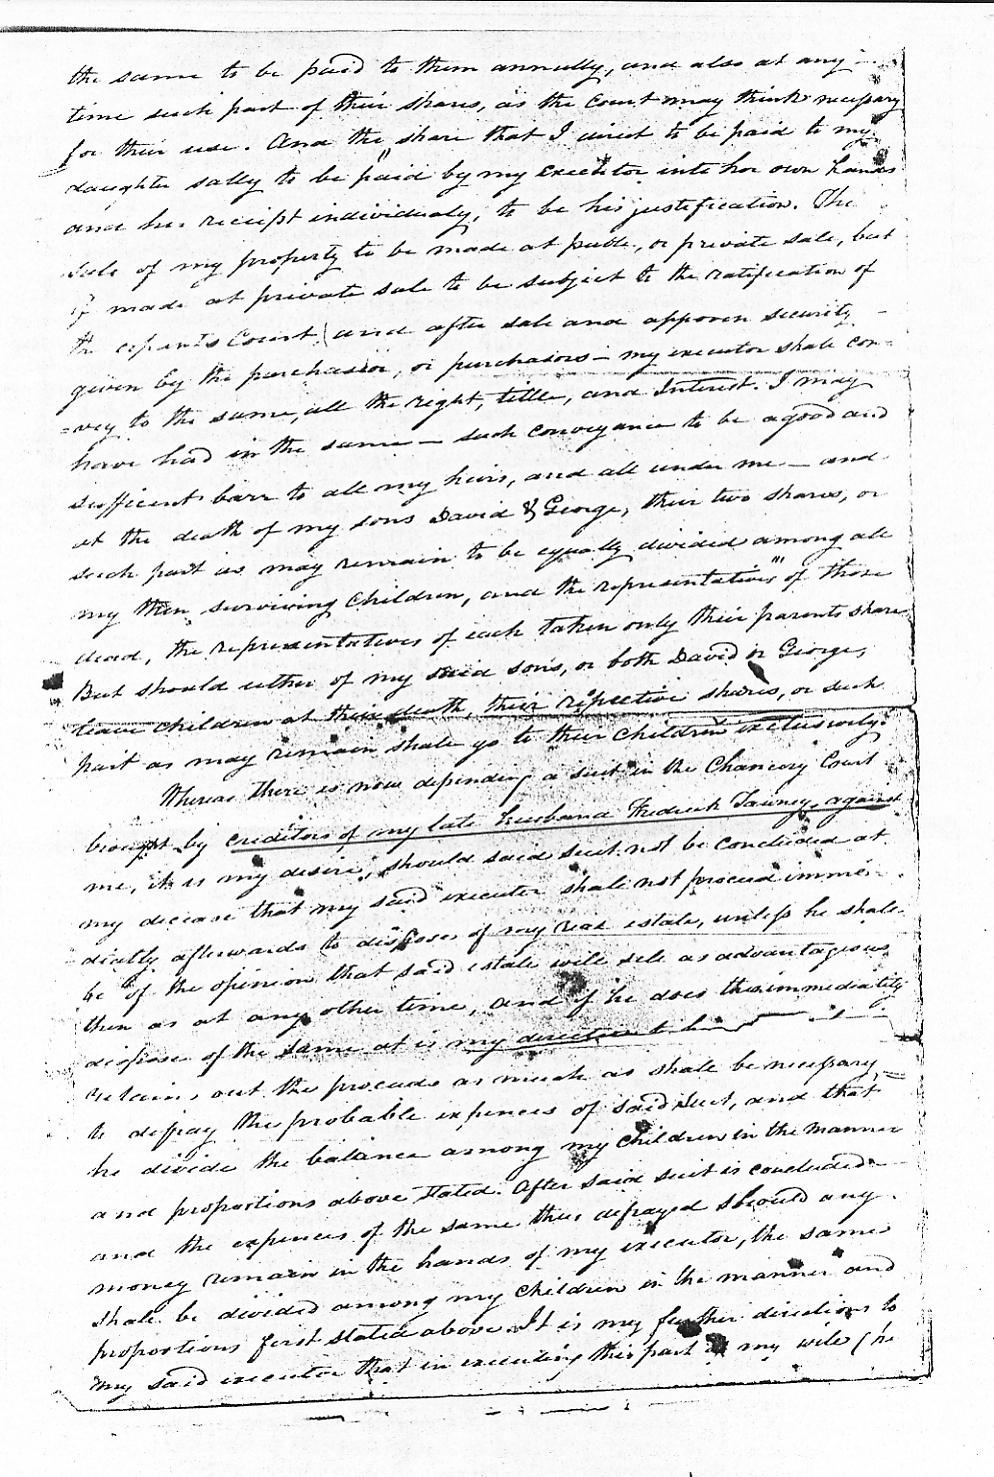 the same to be paid to them annully, and also at any
time such part of their shares, as the Court may think necessary
for their use. And the share that I direct to be paid to my
daughter Sally to be paid by my executor into her own hands
and her receipt individualy, to be his justification. The
sale of my property to be made at public, or private sale, but
if made at private sale to be subject to the ratification of
the orphants Court, and after sale and approven security
given by the purchaser, or purchasers - my executor shall con-
=vey to the same, all the right, tittle, and Interest. I may
have had in the same - such conveyance to be a good and
sufficent barr to all my heirs, and all under me - and
at the death of my sons David & George, their two shares, or
such part as may remain to be equally divided among all
my then surviving Children, and the representatives of those
dead, the representatives of each taken only their parents share
But should either of my said sons, or both David or George,
leave children at their death, their respective shares, or such
part as may remain shall go to their children exclusively.
Whereas there is now depending a suit in the Chancery Court
brought by creditors of my late husband Fredrick Tawney, against
me, it is my desire, should said suit not be concluded at
my decease that my said executor shall not proceed imme-
diatly afterwards to dispose of my real estate, unless he shall
be of the opinion that said estate will sell as advantageous
then as at any other time, and if he does thus immediately
dispose of the same it is my direction
retain, out the proceeds as much as shall be necessary
to defray the probable expences of said Suit, and that
he divide the balance among my children in the manner
and proportions above stated. After said suit is concluded
and the expences of the same thus defrayed should any
money remain in the hands of my executor, the same
shall be divided among my children in the manner and
proportions first stated above. It is my further directions to
my said executor that in executing this part of my will (he